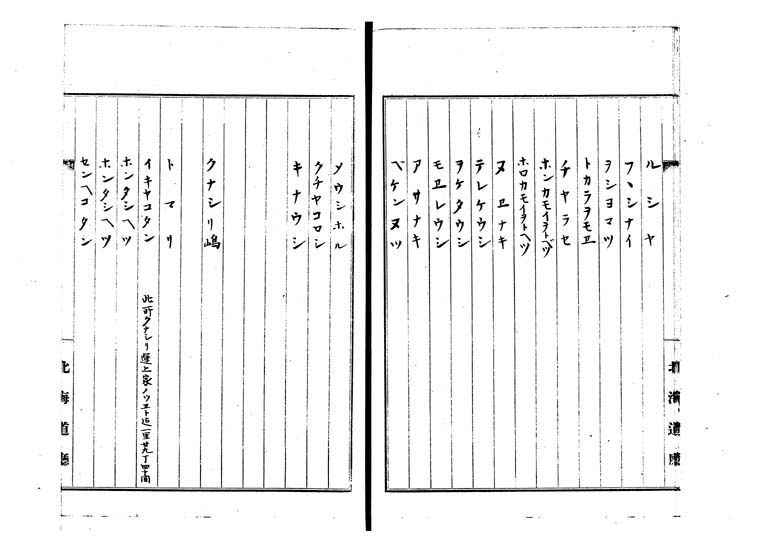 ルシヤ
フヽシナイ
ヲシヨマツ
トカラヲモヱ
チヤラセ
ホンカモイヲトベツ
ホロカモイヲトヘツ
ヌヱナキ
テレケウシ
ヲケタウシ
モヱレウシ
アサナキ
ベケンヌツ
北海道廳
ソウシホル
クチヤコロシ
キナウシ
クナシリ嶋
トマリ
イキヤコタン 此所クナシリ運上家ノツエト迄一里廿九丁四十間
ホンタシヘツ
ホンタシヘツ
センヘコタン
北海道廳